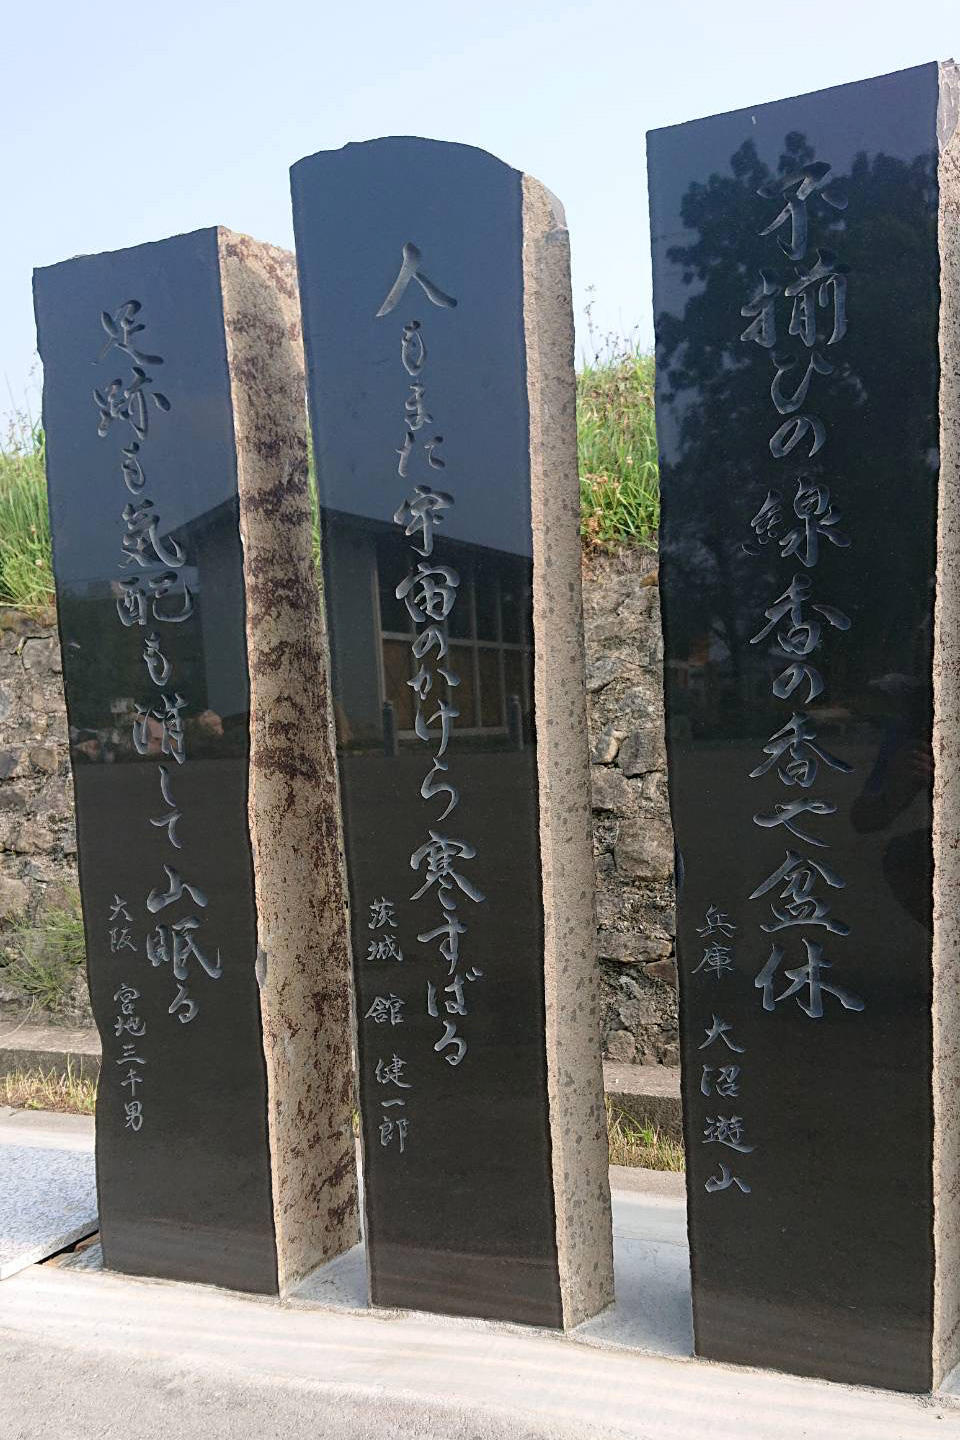 不揃ひの線香の香や盆休
兵庫 大沼遊山
人もまた宇宙のかけら寒すばる
茨城 舘 健一郎
足跡も気配も消して山眠る
大阪 宮地三千男